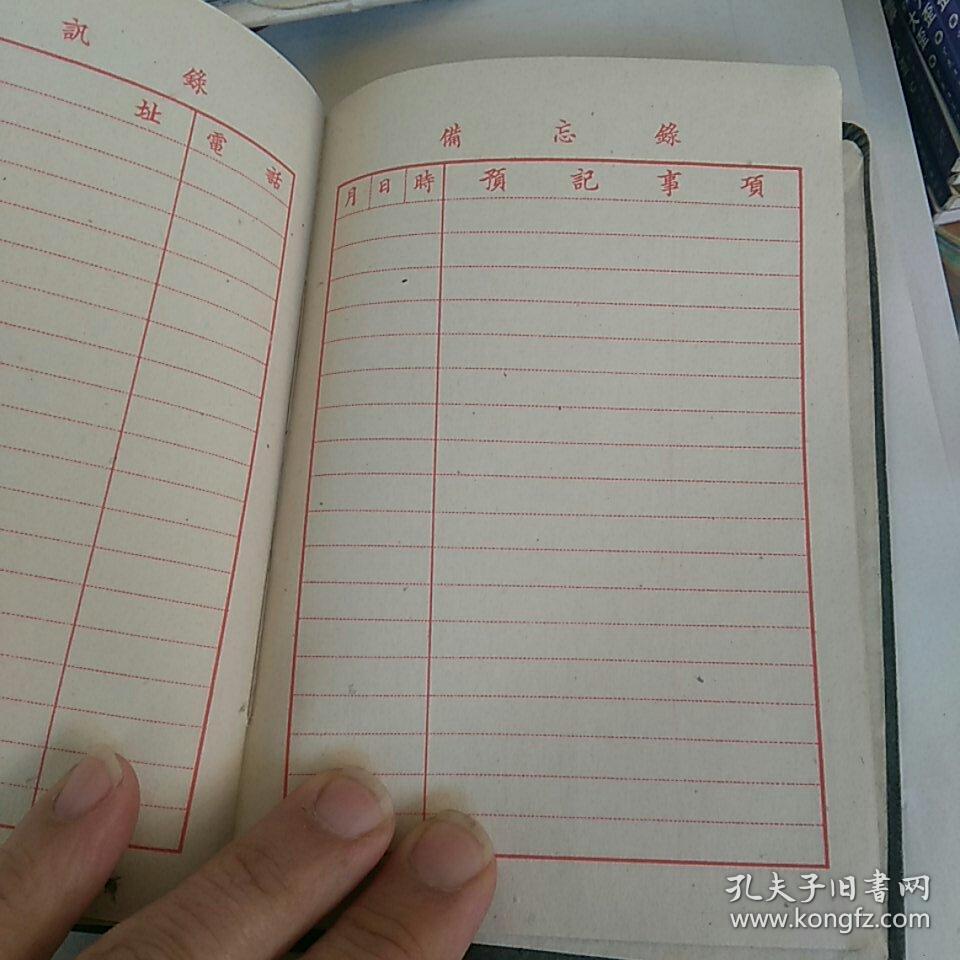 訊錄
址 電話
備忘錄
月 日 時 預記事項
孔夫子旧書网
www.kongfz.com